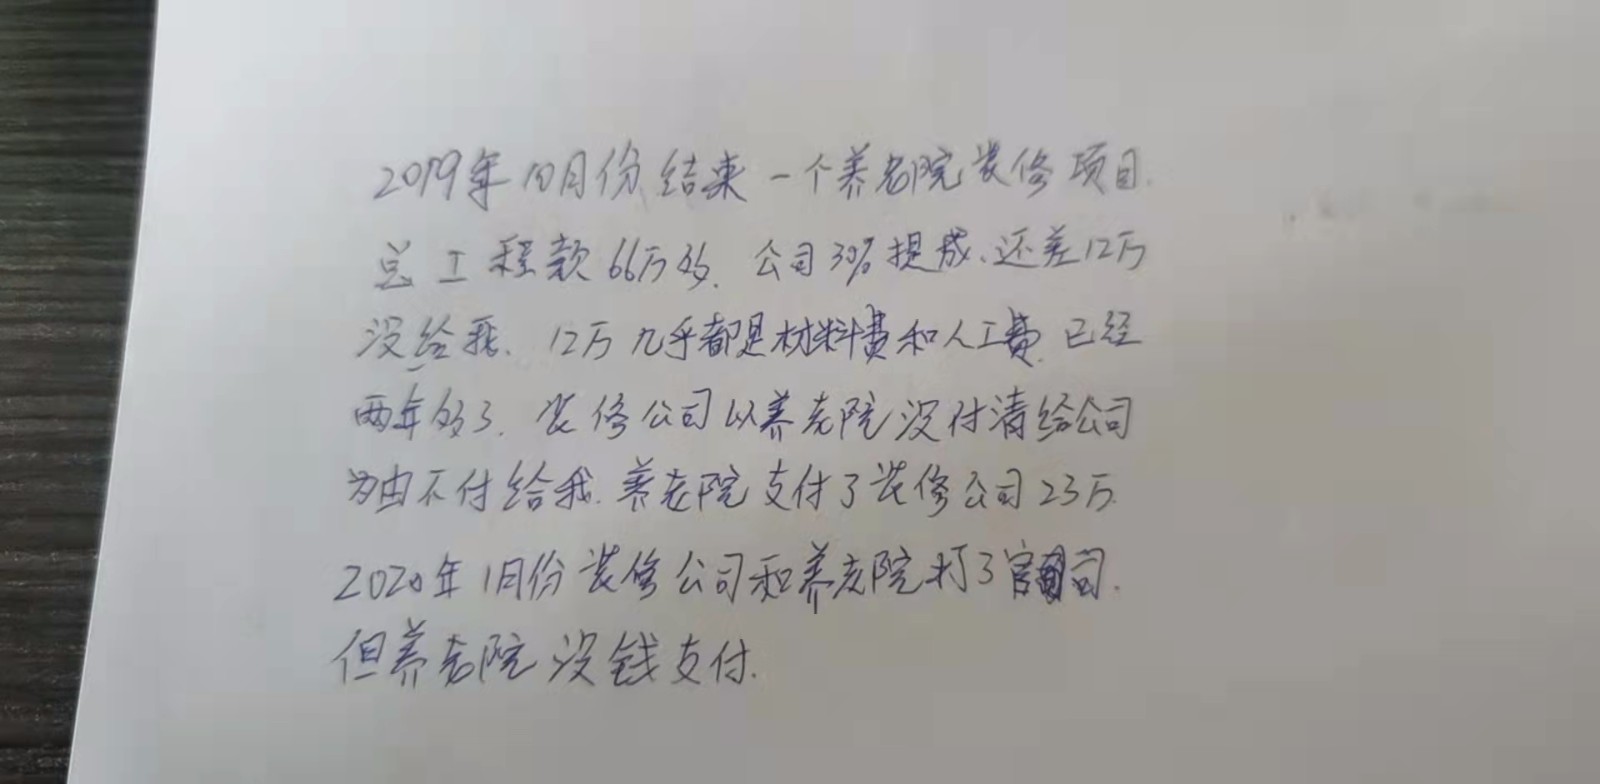 2019年10月份结束一个养老院装修项目.
总工程款66万多.公司3%提成、还差12万
没给我、12万几乎都是材料费和人工费.已经
两年多了.装修公司以养老院没付清给公司
为由不付给我.养老院支付了装修公司23万.
2020年1月份装修公司和养老院打了官司.
但养老院没钱支付.